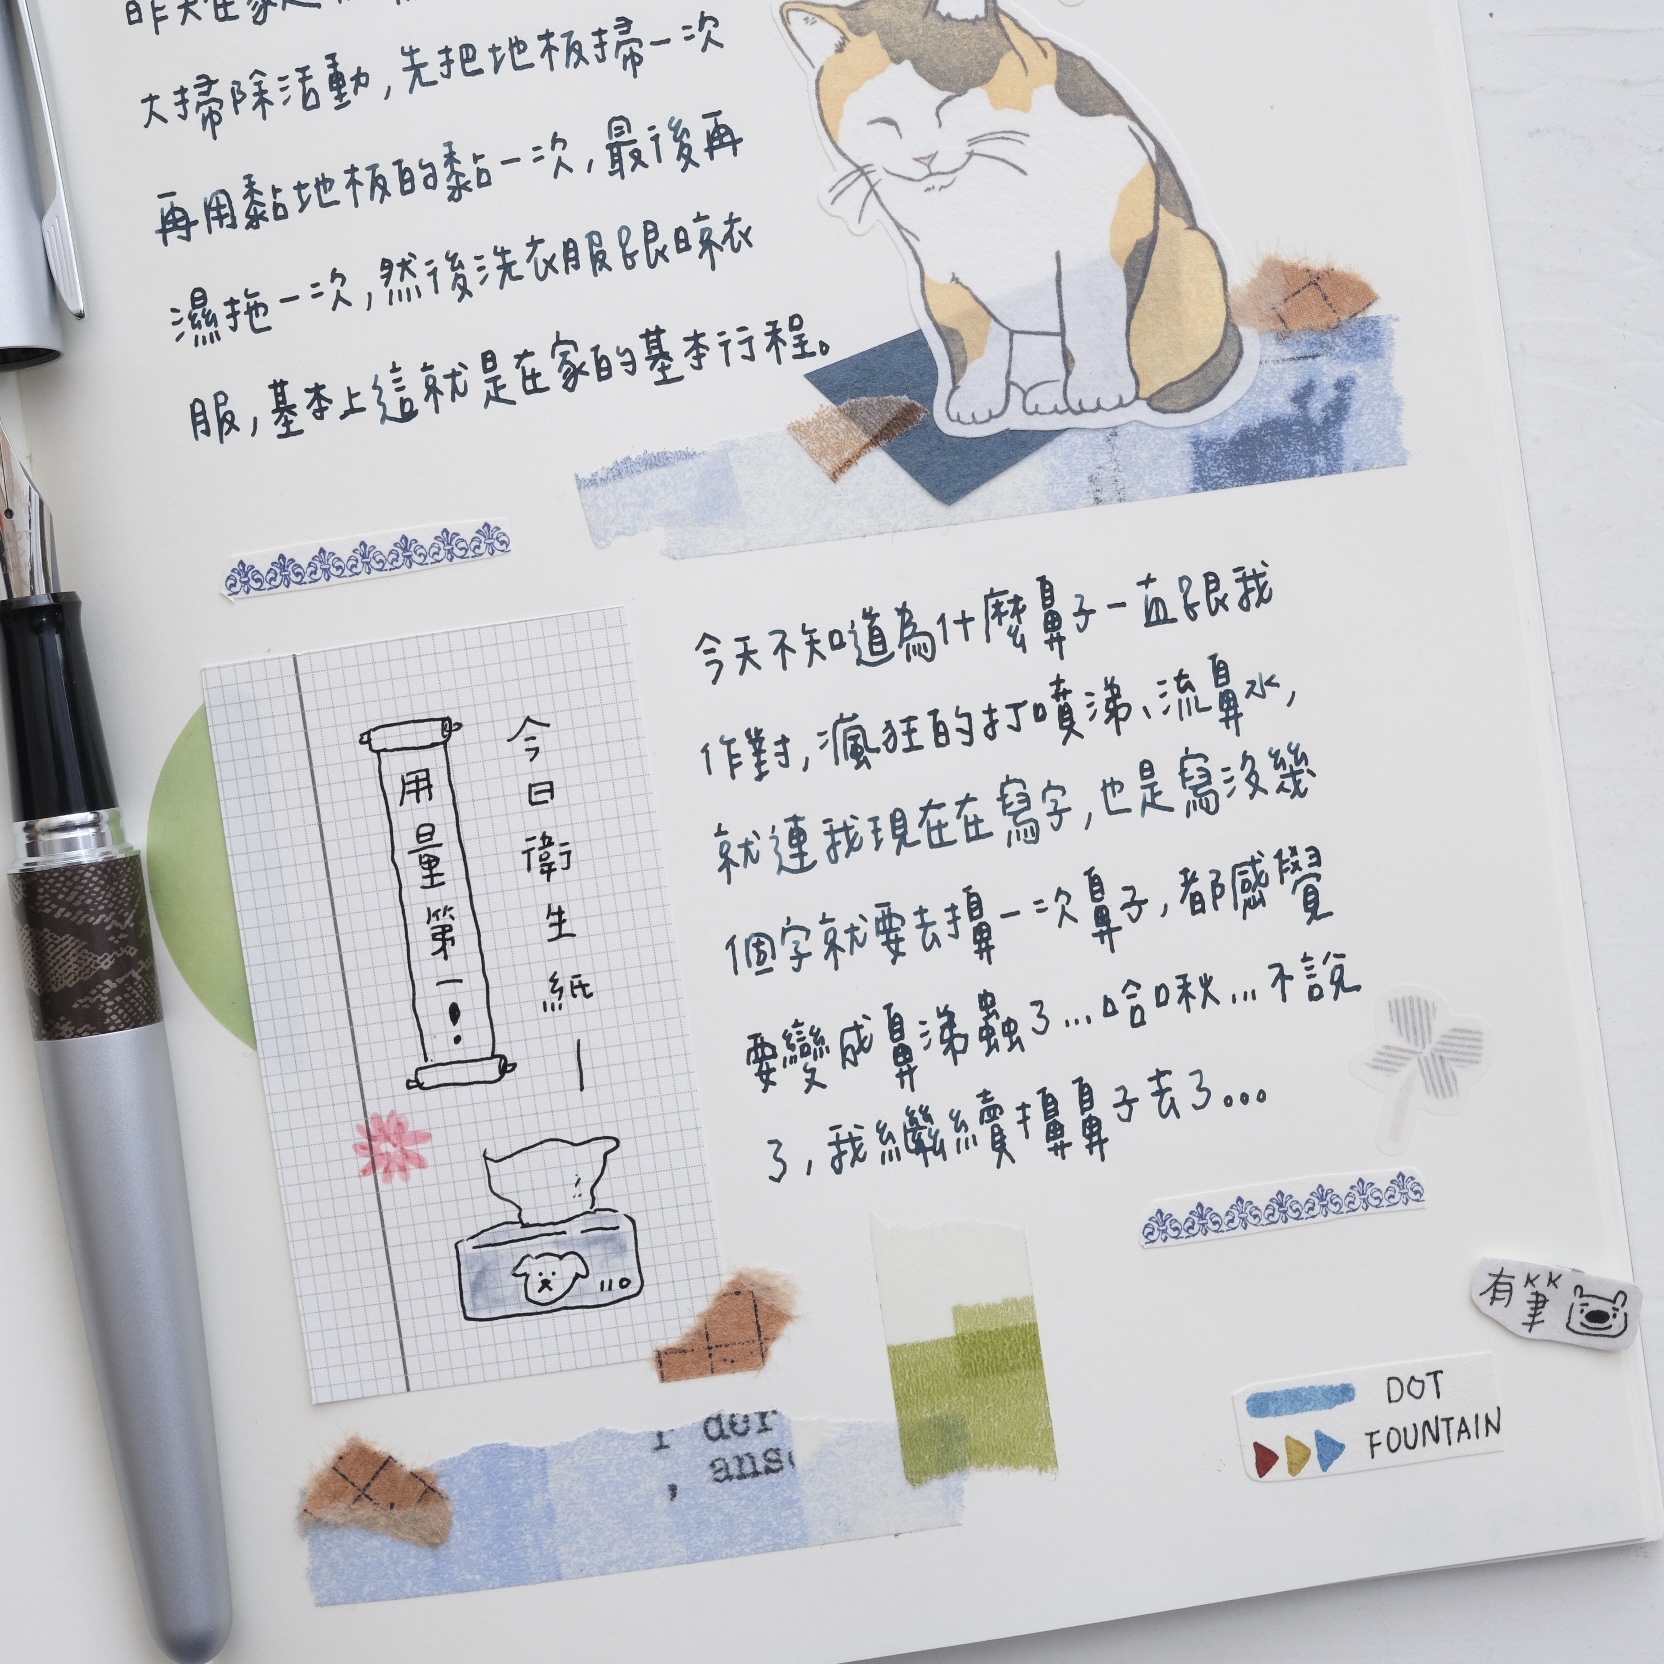 昨天在家
大掃除活動,先把地板掃一次
再用黏地板的黏一次,最後再
濕拖一次,然後洗衣服跟晾衣
服,基本上這就是在家的基本行程。
今天不知道為什麼鼻子一直跟我
作對,瘋狂的打噴涕、流鼻水,
就連我現在在寫字,也是寫沒幾
個字就要去擤一次鼻子,都感覺
要變成鼻涕蟲了...哈啾...不說
了,我繼續擤鼻子去了...
今日衛生紙—
用量第一!
110
r der
, ans
有筆
DOT
FOUNTAIN